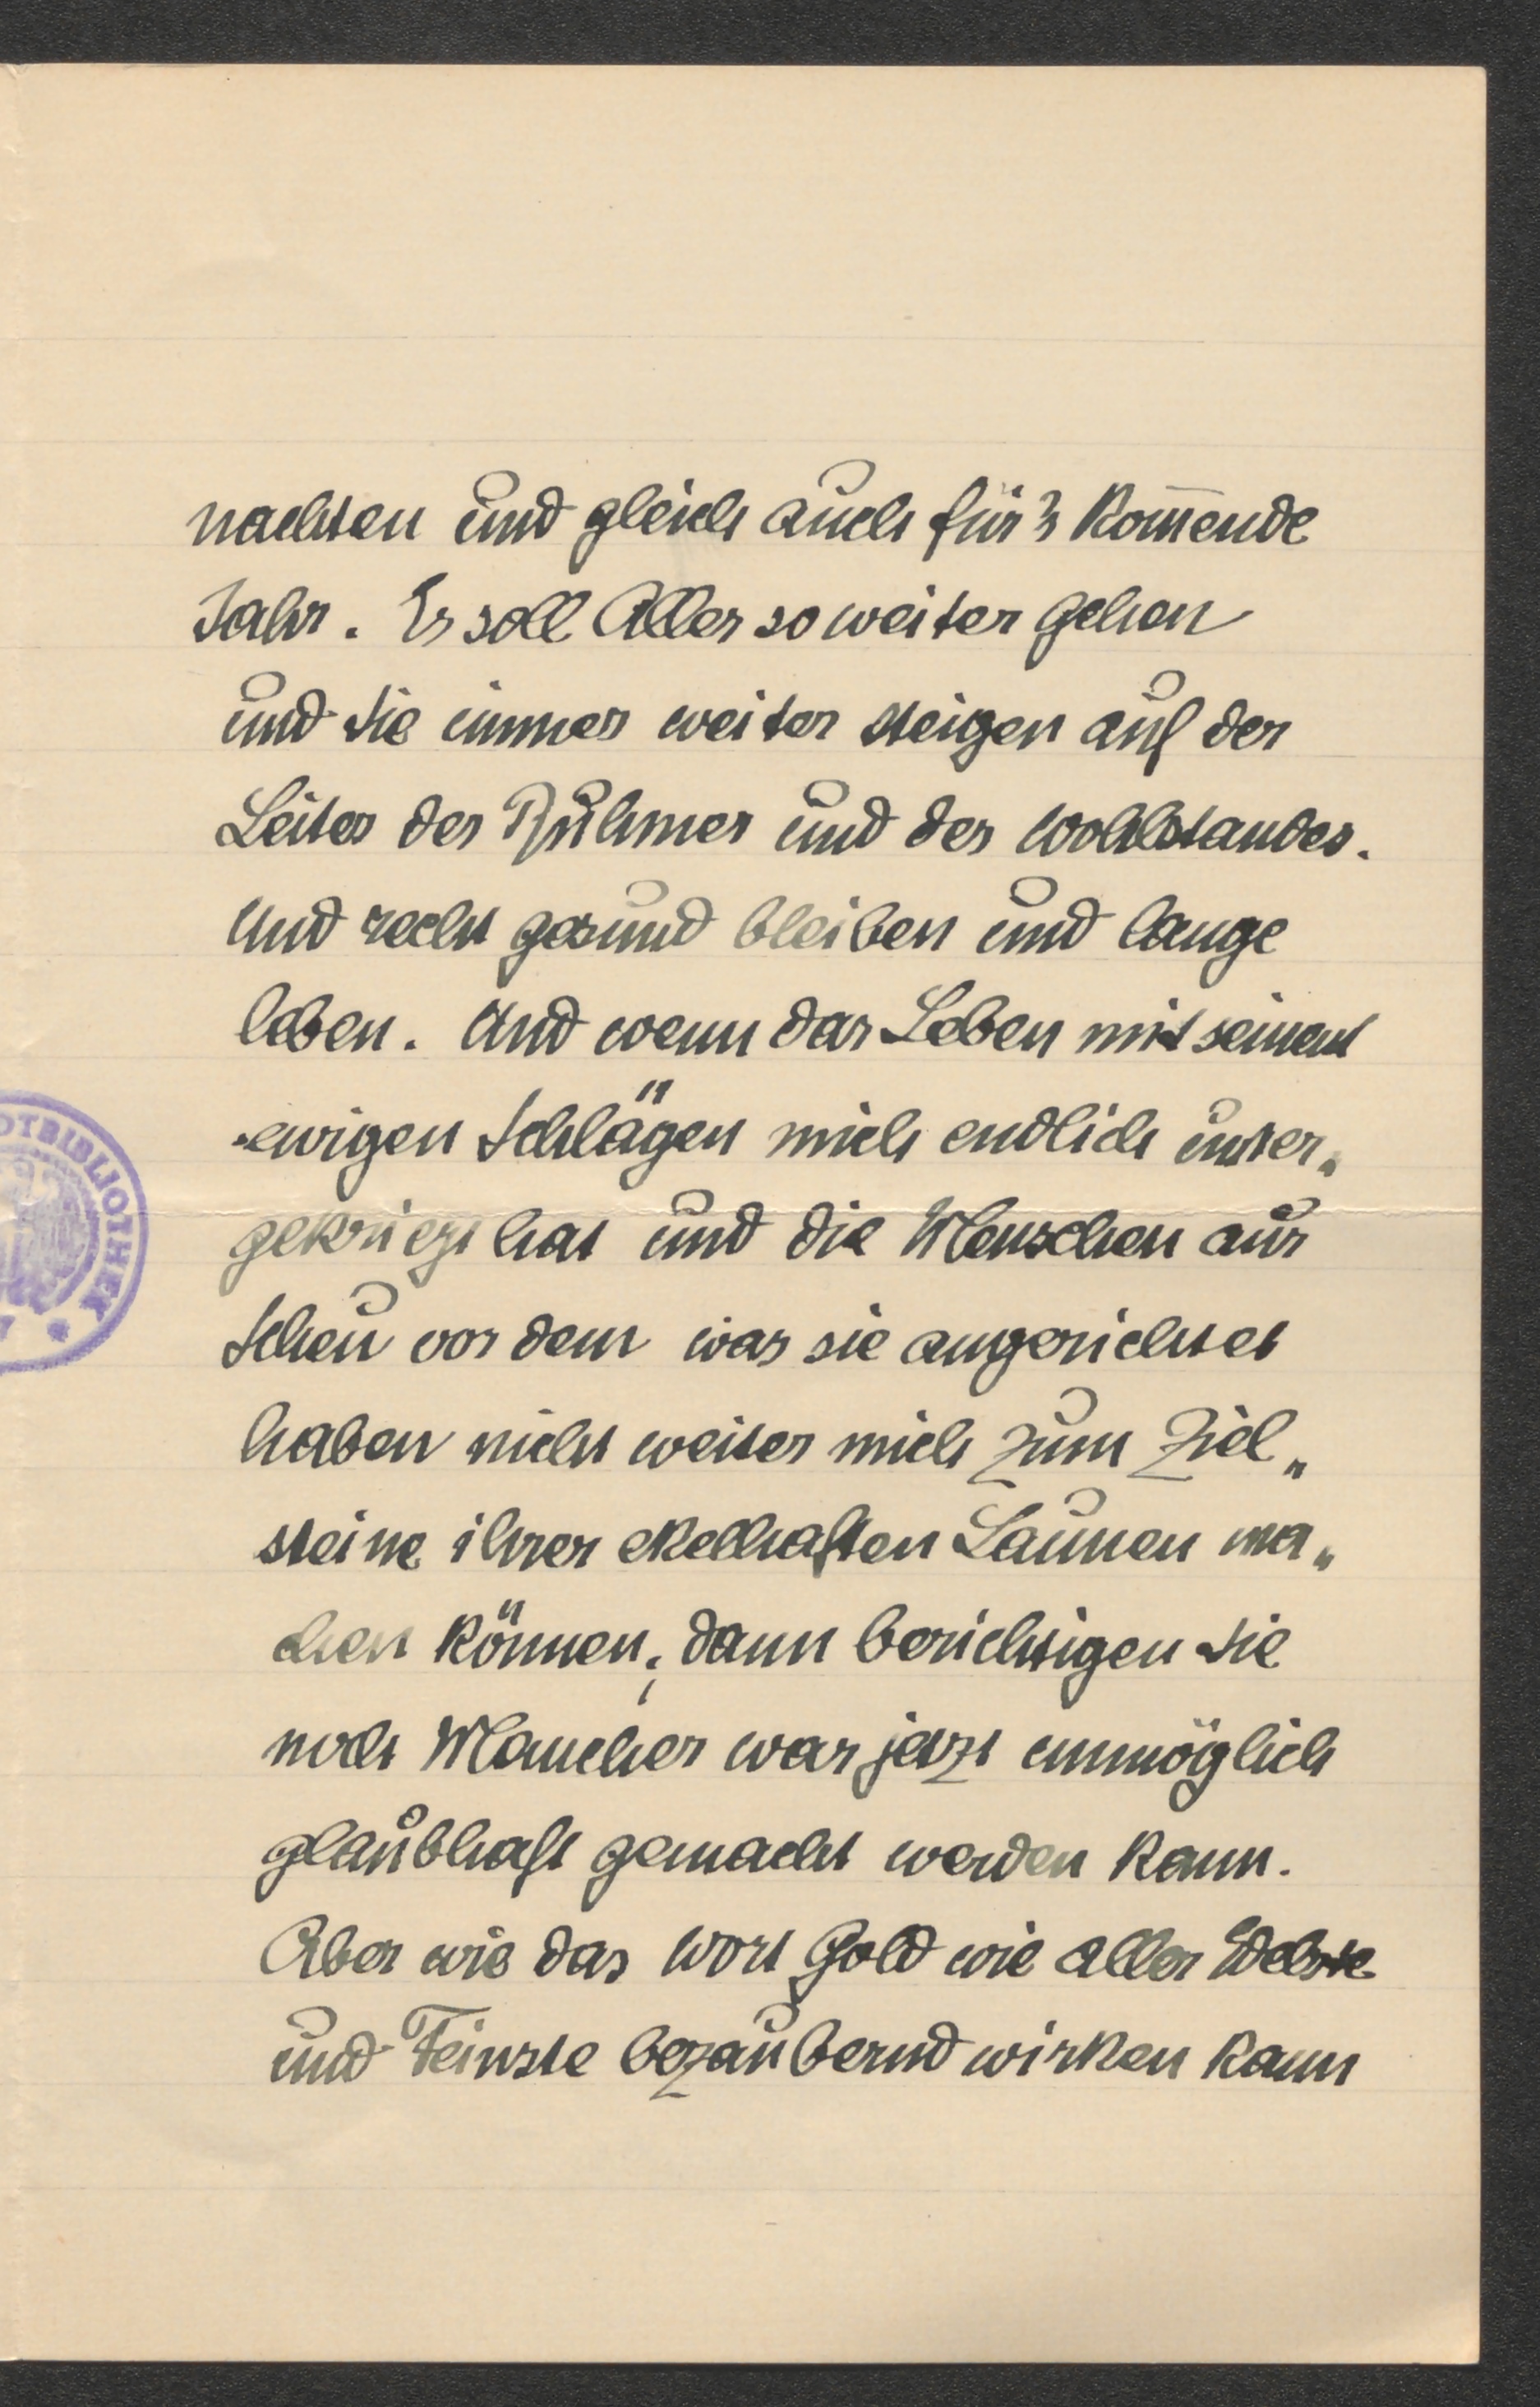 nachten und gleich auch für's kom̅ende
Jahr. Es soll Alles so weiter gehen
und Sie immer weiter steigen auf der
Leiter des Ruhmes und des Wohlstandes.
Und recht gesund bleiben und lange
leben. Und wenn das Leben mit seinen
ewigen Schlägen mich endlich unter„
gekriegt hat und die Menschen aus
Scheu vor dem was sie angerichtet
haben nicht weiter mich zum Ziel„
steine ihrer ekelhaften Launen ma„
chen können, dann berichtigen Sie
noch Manches was jetzt unmöglich
glaubhaft gemacht werden kann.
Aber wie das Wort Gold wie alles Edelste
und Feinste bezaubernd wirken kann
OTBIBLIOTHEK